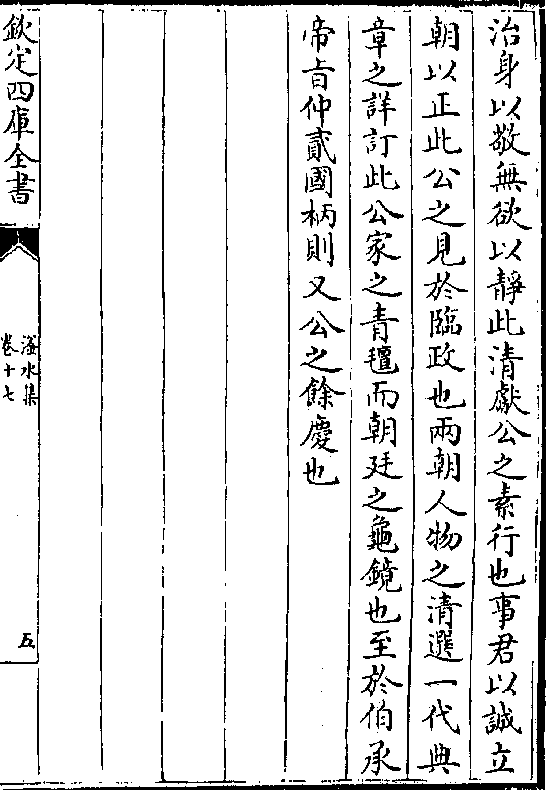 治身以敬無欲以靜此清獻公之素行也事君以誠立
朝以正此公之見於臨政也兩朝人物之清選一代典
章之詳訂此公家之青氊而朝廷之龜鏡也至於伯承
帝㫖仲貳國柄則又公之餘慶也
欽定四庫全書
滏水集
卷十七
五